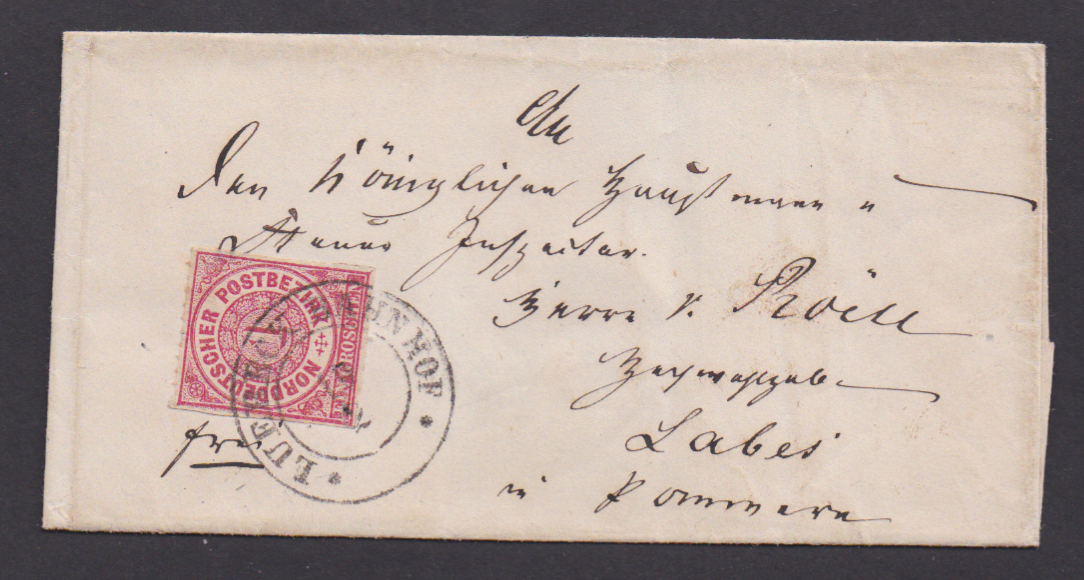 An
den Königlichen Hauptmann u
Steuer Inspector.
Herrn v. Röell
Labes
in Pommern
frei
NORDDEUTSCHER POSTBEZIRK
GROSCHEN
LUEBECK BAHNHOF